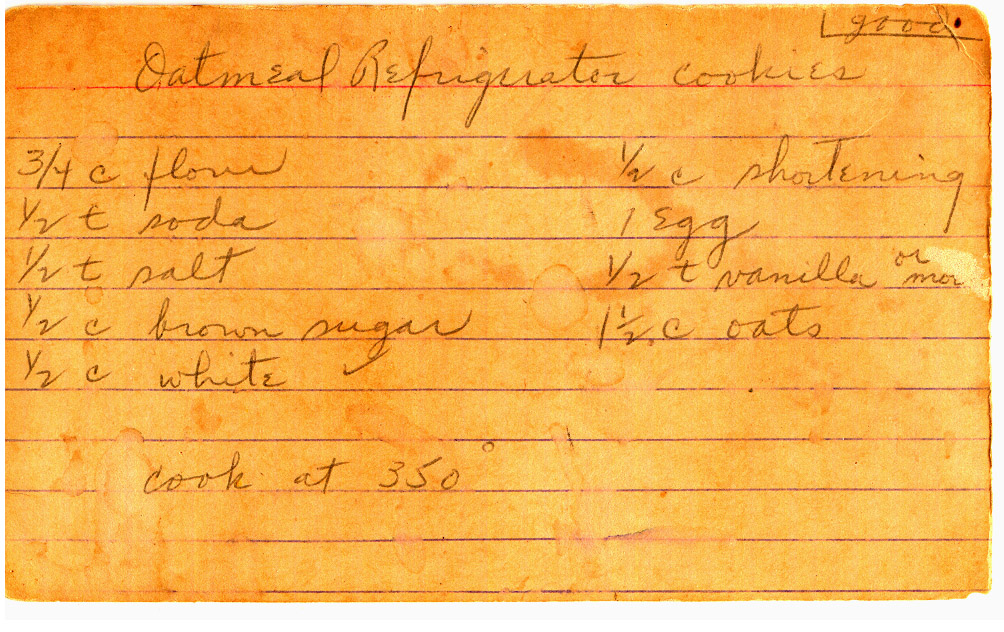 good.
Oatmeal Refrigerator cookies
3/4 c flour
1/2 t soda
1/2 t salt
1/2 c brown sugar
1/2 c white "
1/2 c shortening
1 Egg
1/2 t vanilla or more
1 1/2 c oats
cook at 350°